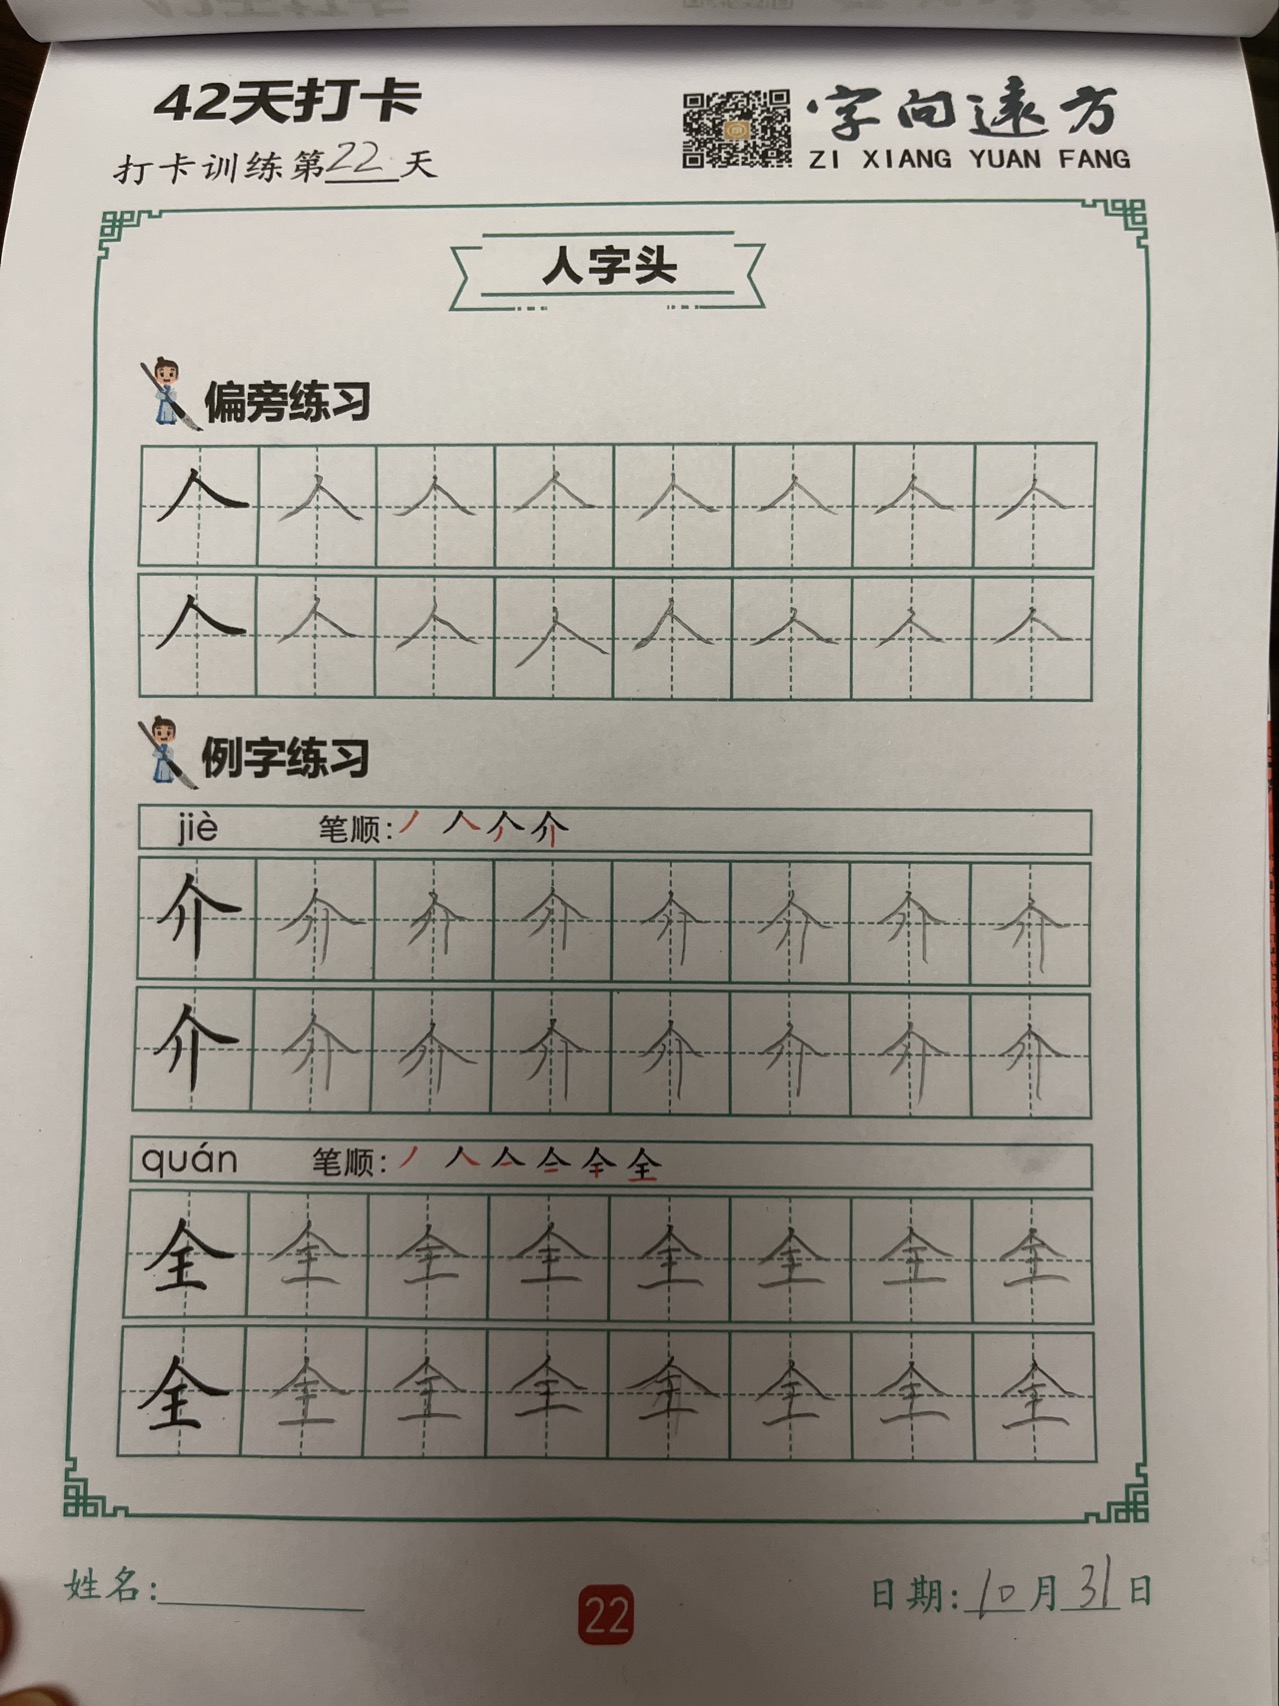 42天打卡
字向遠方
ZI XIANG YUAN FANG
打卡训练第22天
人字头
偏旁练习
人 人 人 人 人 人 人 人
人 人 人 人 人 人 人 人
例字练习
jiè 笔顺:
介 介 介 介 介 介 介 介
介 介 介 介 介 介 介 介
quán 笔顺:
全 全 全 全 全 全 全 全
全 全 全 全 全 全 全 全
姓名:
22
日期:10月31日